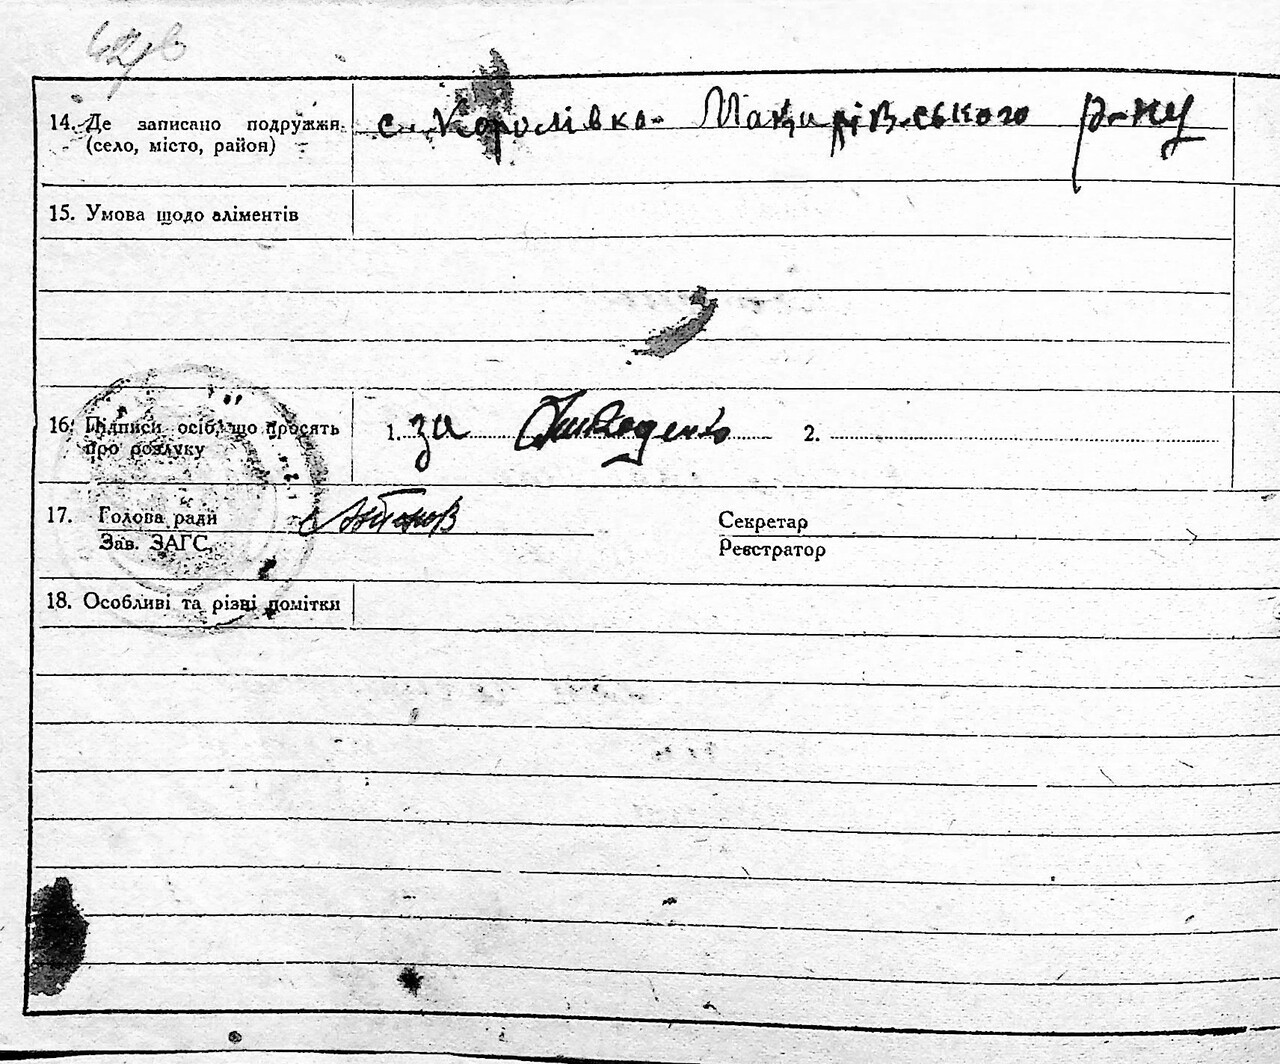 14. Де записано подружжя (село, місто, район) с. Королівка Макарівського р-ну
15. Умова щодо аліментів
16. Підписи осіб, що просять про розлуку 1. за 2.
17. Голова ради
Зав. ЗАГС
Секретар
Реєстратор
18. Особливі та різні помітки